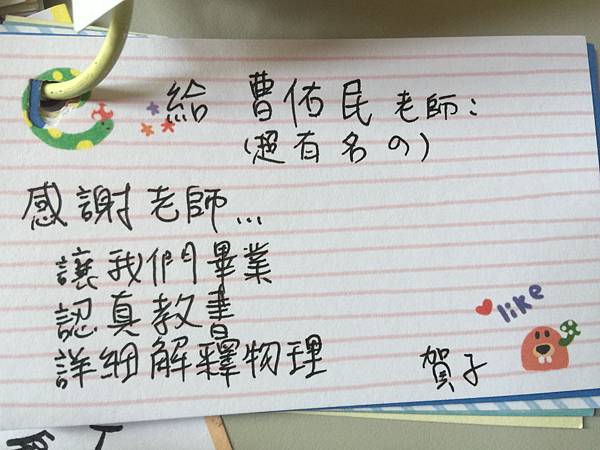 給 曹佑民 老師：
(超有名の)
感謝老師...
讓我們畢業
認真教書
詳細解釋物理
like
賀子